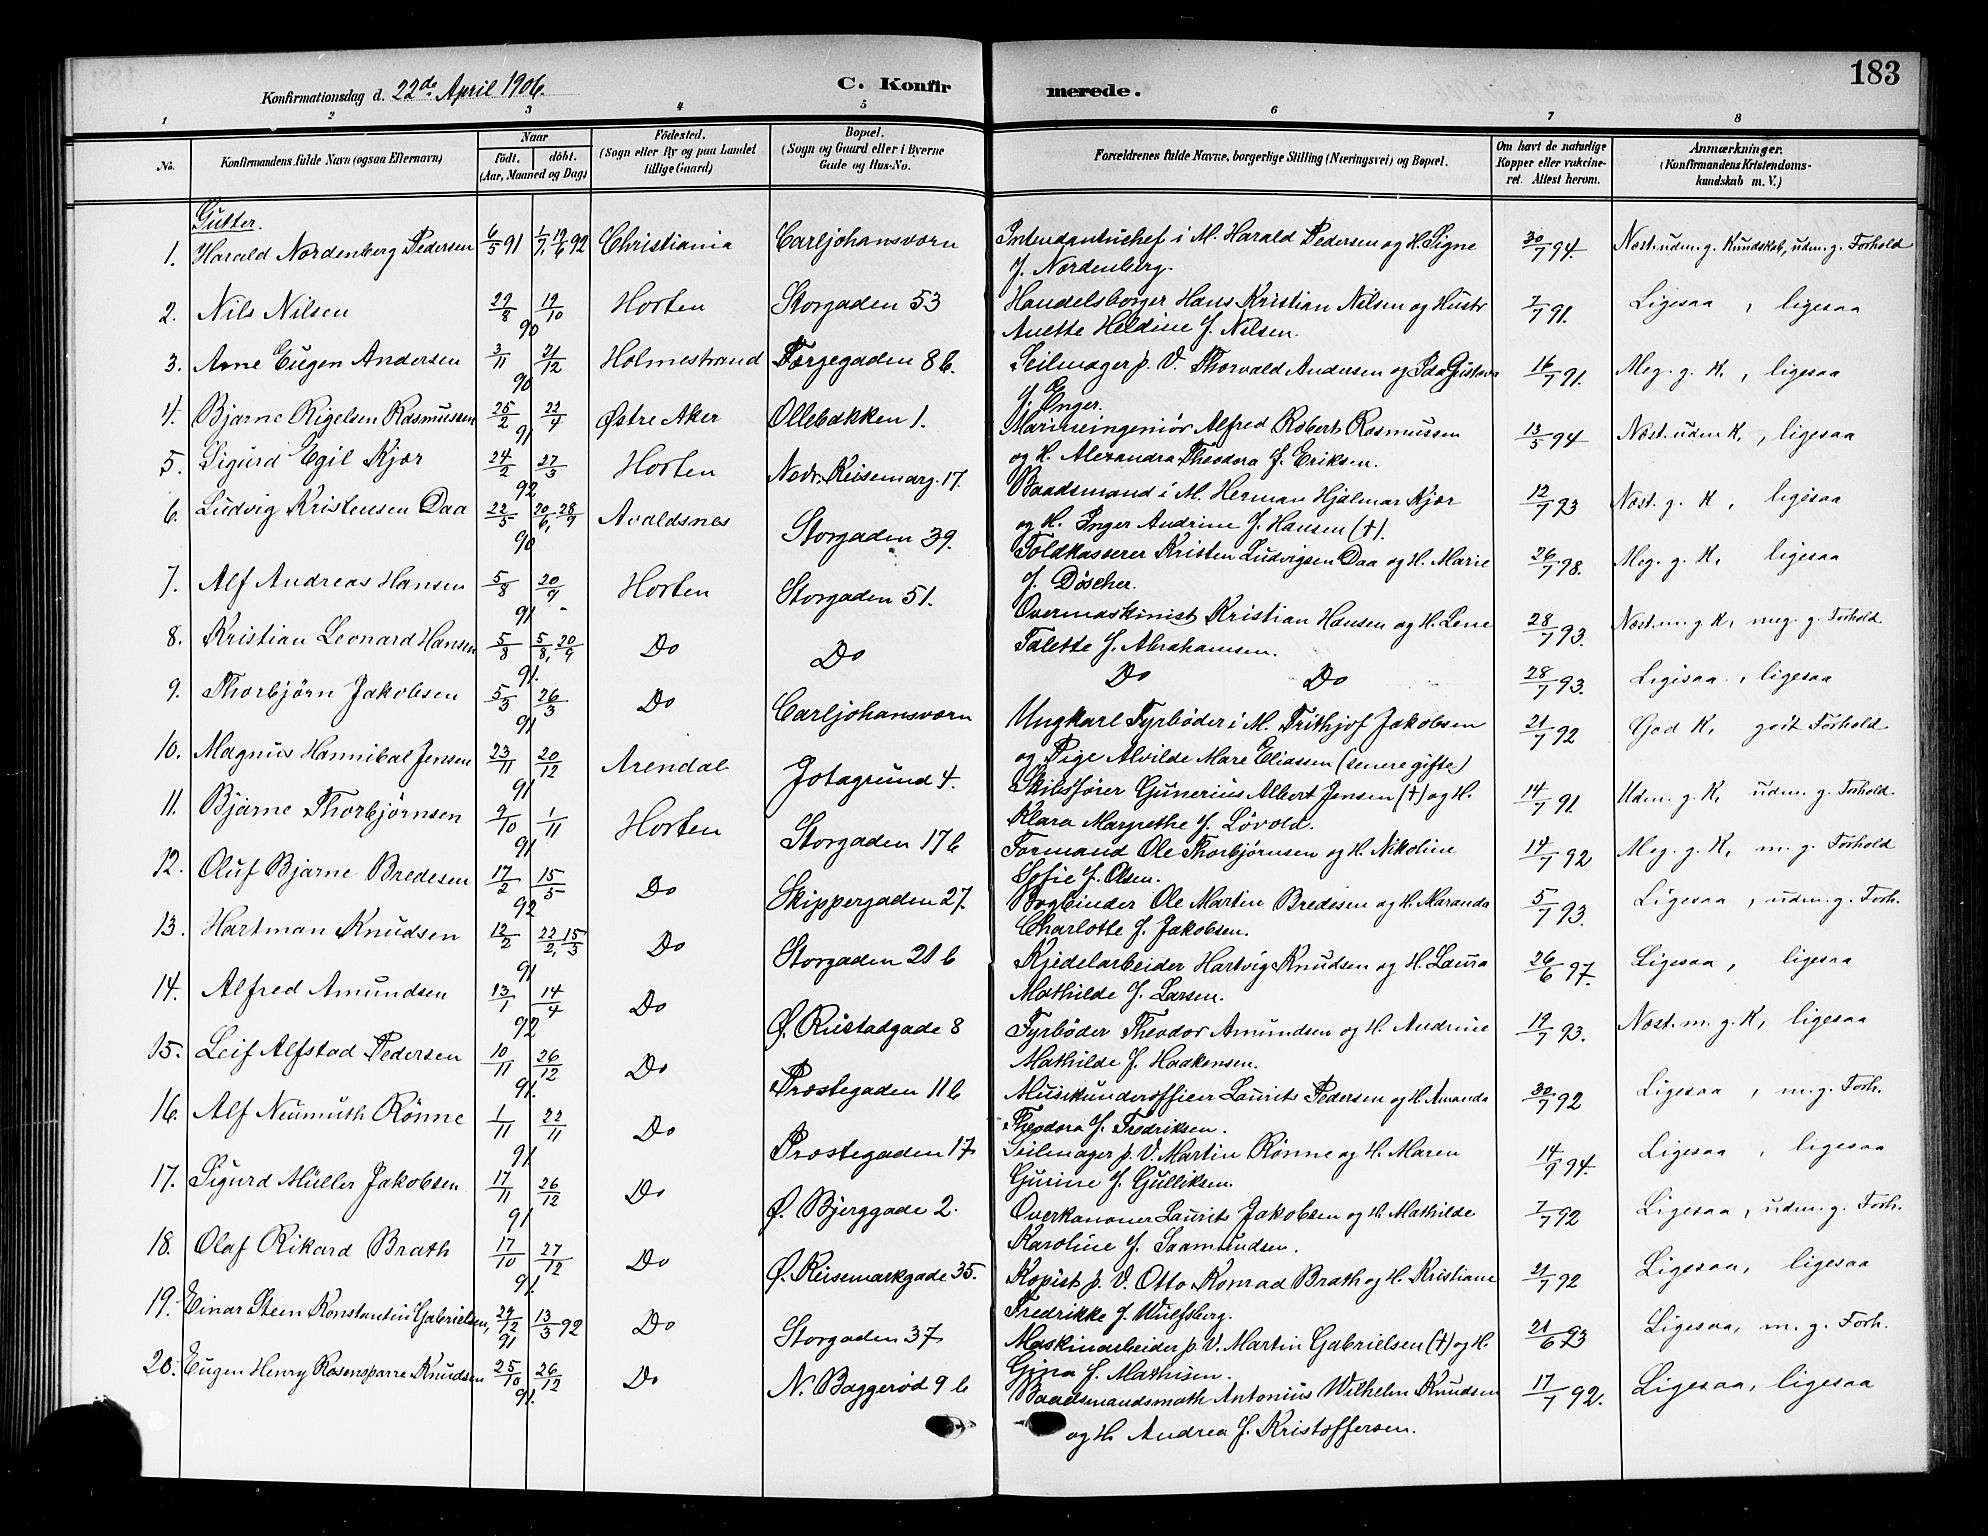 183
Konfirmationsdag d. 22de April 1906.
C. Konfirmerede.
1 2 3 4 5 6 7 8
No.
Konfirmandens fulde Navn (ogsaa Efternavn)
Naar
födt. döbt.
(Aar, Maaned og Dag)
Födested.
(Sogn eller By og paa Landet
tillige Gaard)
Bopæl.
(Sogn og Gaard eller i Byerne
Gade og Hus-No.
Forældrenes fulde Navne, borgerlige Stilling (Næringsvei) og Bopæl.
Om havt de naturlige
Kopper eller vakcine-
ret. Attest herom.
Anmærkninger.
(Konfirmandens Kristendoms-
kundskab m. V.)
Gutter.
1. Harald Nordenberg Pedersen 6/5 91 1/7, 19/6 92 Christiania Carljohansværn Intendanturchef i M. Harald Pedersen og H. Signe 30/7 94. Næst. udm. g. Kundskab, udm. g. Forhold
f. Nordenberg.
2. Nils Nilsen 29/8 19/10 90 Horten Storgaden 53 Handelsborger Hans Kristian Nilsen og Hustr 7/7 91. Ligesaa, ligesaa
Anette Heldine f. Nilsen.
3. Arne Eugen Andersen 3/11 21/12 90 Holmestrand Færgegaden 8 b. Seilmager p. V. Thorvald Andersen og Ida Gustava 16/7 91. Meg. g. K., ligesaa
f. Enger.
4. Bjarne Rigelsen Rasmussen 25/2 22/4 91 Østre Aker Ollebakken 1. Marineingeniør Alfred Robert Rasmussen 13/5 94 Næst. udm K, ligesaa
og H. Alexandra Theodora f. Eriksen.
5. Sigurd Egil Kjær 24/2 27/3 92 Horten Nedr. Keisemarg. 17. Baadsmand i M. Herman Hjalmar Kjær 12/7 93 Næst. g. K, ligesaa
og H. Inger Andrine f. Hansen (†).
6. Ludvig Kristensen Daa 22/5 20/6, 28/9 90 Avaldsnes Storgaden 39. Toldkasserer Kristen Ludvigsen Daa og H. Marie 26/7 98. Meg. g. K, ligesaa
f. Döscher.
7. Alf Andreas Hansen 5/8 20/9 91 Horten Storgaden 51. Overmaskinist Kristian Hansen og H. Lene 28/7 93. Næst. m. g K, meg. g. Forhold.
Talette f. Abrahamsen.
8. Kristian Leonard Hansen 5/8 5/8, 20/9 91. Do Do Do Do 28/7 93. Ligesaa, ligesaa
9. Thorbjørn Jakobsen 5/3 26/3 91 Do Carljohansværn Ungkarl Fyrbøder i M. Frithjof Jakobsen 21/7 92 God K, godt Forhold
og Pige Alvilde Mare Eliassen (senere gifte)
10. Magnus Hannibal Jensen 23/11 20/12 91 Arendal Jotagrund 4. Skibsfører Gunerius Albert Jensen (†) og H. 14/7 91. Udm. g. K, udm. g. Forhold.
Klara Margrethe f. Løvold.
11. Bjarne Thorbjørnsen 9/10 1/11 91 Horten Storgaden 17 b Formand Ole Thorbjørnsen og H. Nikoline 14/7 92 Meg. g. K, m. g. Forhold
Sofie f. Olsen.
12. Oluf Bjarne Bredesen 17/2 15/5 92 Do Skippergaden 27. Bogbinder Ole Martin Bredesen og H. Maranda 5/7 93. Ligesaa, udm. g. Forh.
Charlotte f. Jakobsen.
13. Hartman Knudsen 12/2 22/2, 15/3 91 Do Storgaden 21 b Kjedelarbeider Hartvig Knudsen og H. Laura 26/6 97. Ligesaa, ligesaa
Mathilde f. Larsen.
14. Alfred Amundsen 13/1 14/4 92 Do Ø. Rustadgade 8 Fyrbøder Theodor Amundsen og H. Andrine 19/7 93. Næst. m. g. K, ligesaa
Mathilde f. Haakensen.
15. Leif Alfstad Pedersen 10/11 26/12 91. Do Præstegaden 11 b Musikunderofficer Laurits Pedersen og H. Amanda 30/7 92 Ligesaa, m. g. Forh.
Theodora f. Fredriksen.
16. Alf Neumuth Rönne 1/11 22/11 91 Do Præstegaden 17 Seilmager p. V. Martin Rönne og H. Maren 14/9 94. Ligesaa, ligesaa
Gurine f. Gulliksen.
17. Sigurd Müller Jakobsen 17/11 26/12 91 Do Ø. Bjerggade 2. Overkanoner Laurits Jakobsen og H. Mathilde 7/7 92 Ligesaa, udm. g. Forh.
Karoline f. Saamundsen.
18. Olaf Rikard Brath 17/10 27/12 91. Do Ø. Keisemarkgade 35. Kopist p. V. Otto Konrad Brath og H. Kristiane 21/7 92 Ligesaa, ligesaa
Fredrikke f. Wulfsberg.
19. Einar Steen Konstantin Gabrielsen, 29/12 91 13/3 92 Do Storgaden 37 Maskinarbeider p. V. Martin Gabrielsen (†) og H. 21/6 93 Ligesaa, m. g. Forh.
Gina f. Mathisen.
20. Eugen Henry Rosensparre Knudsen 25/10 26/12 91. Do N. Baggerød 9 b Baadsmandsmath Antonius Wilhelm Knudsen 17/7 92. Ligesaa, ligesaa
og H. Andrea f. Kristoffersen.